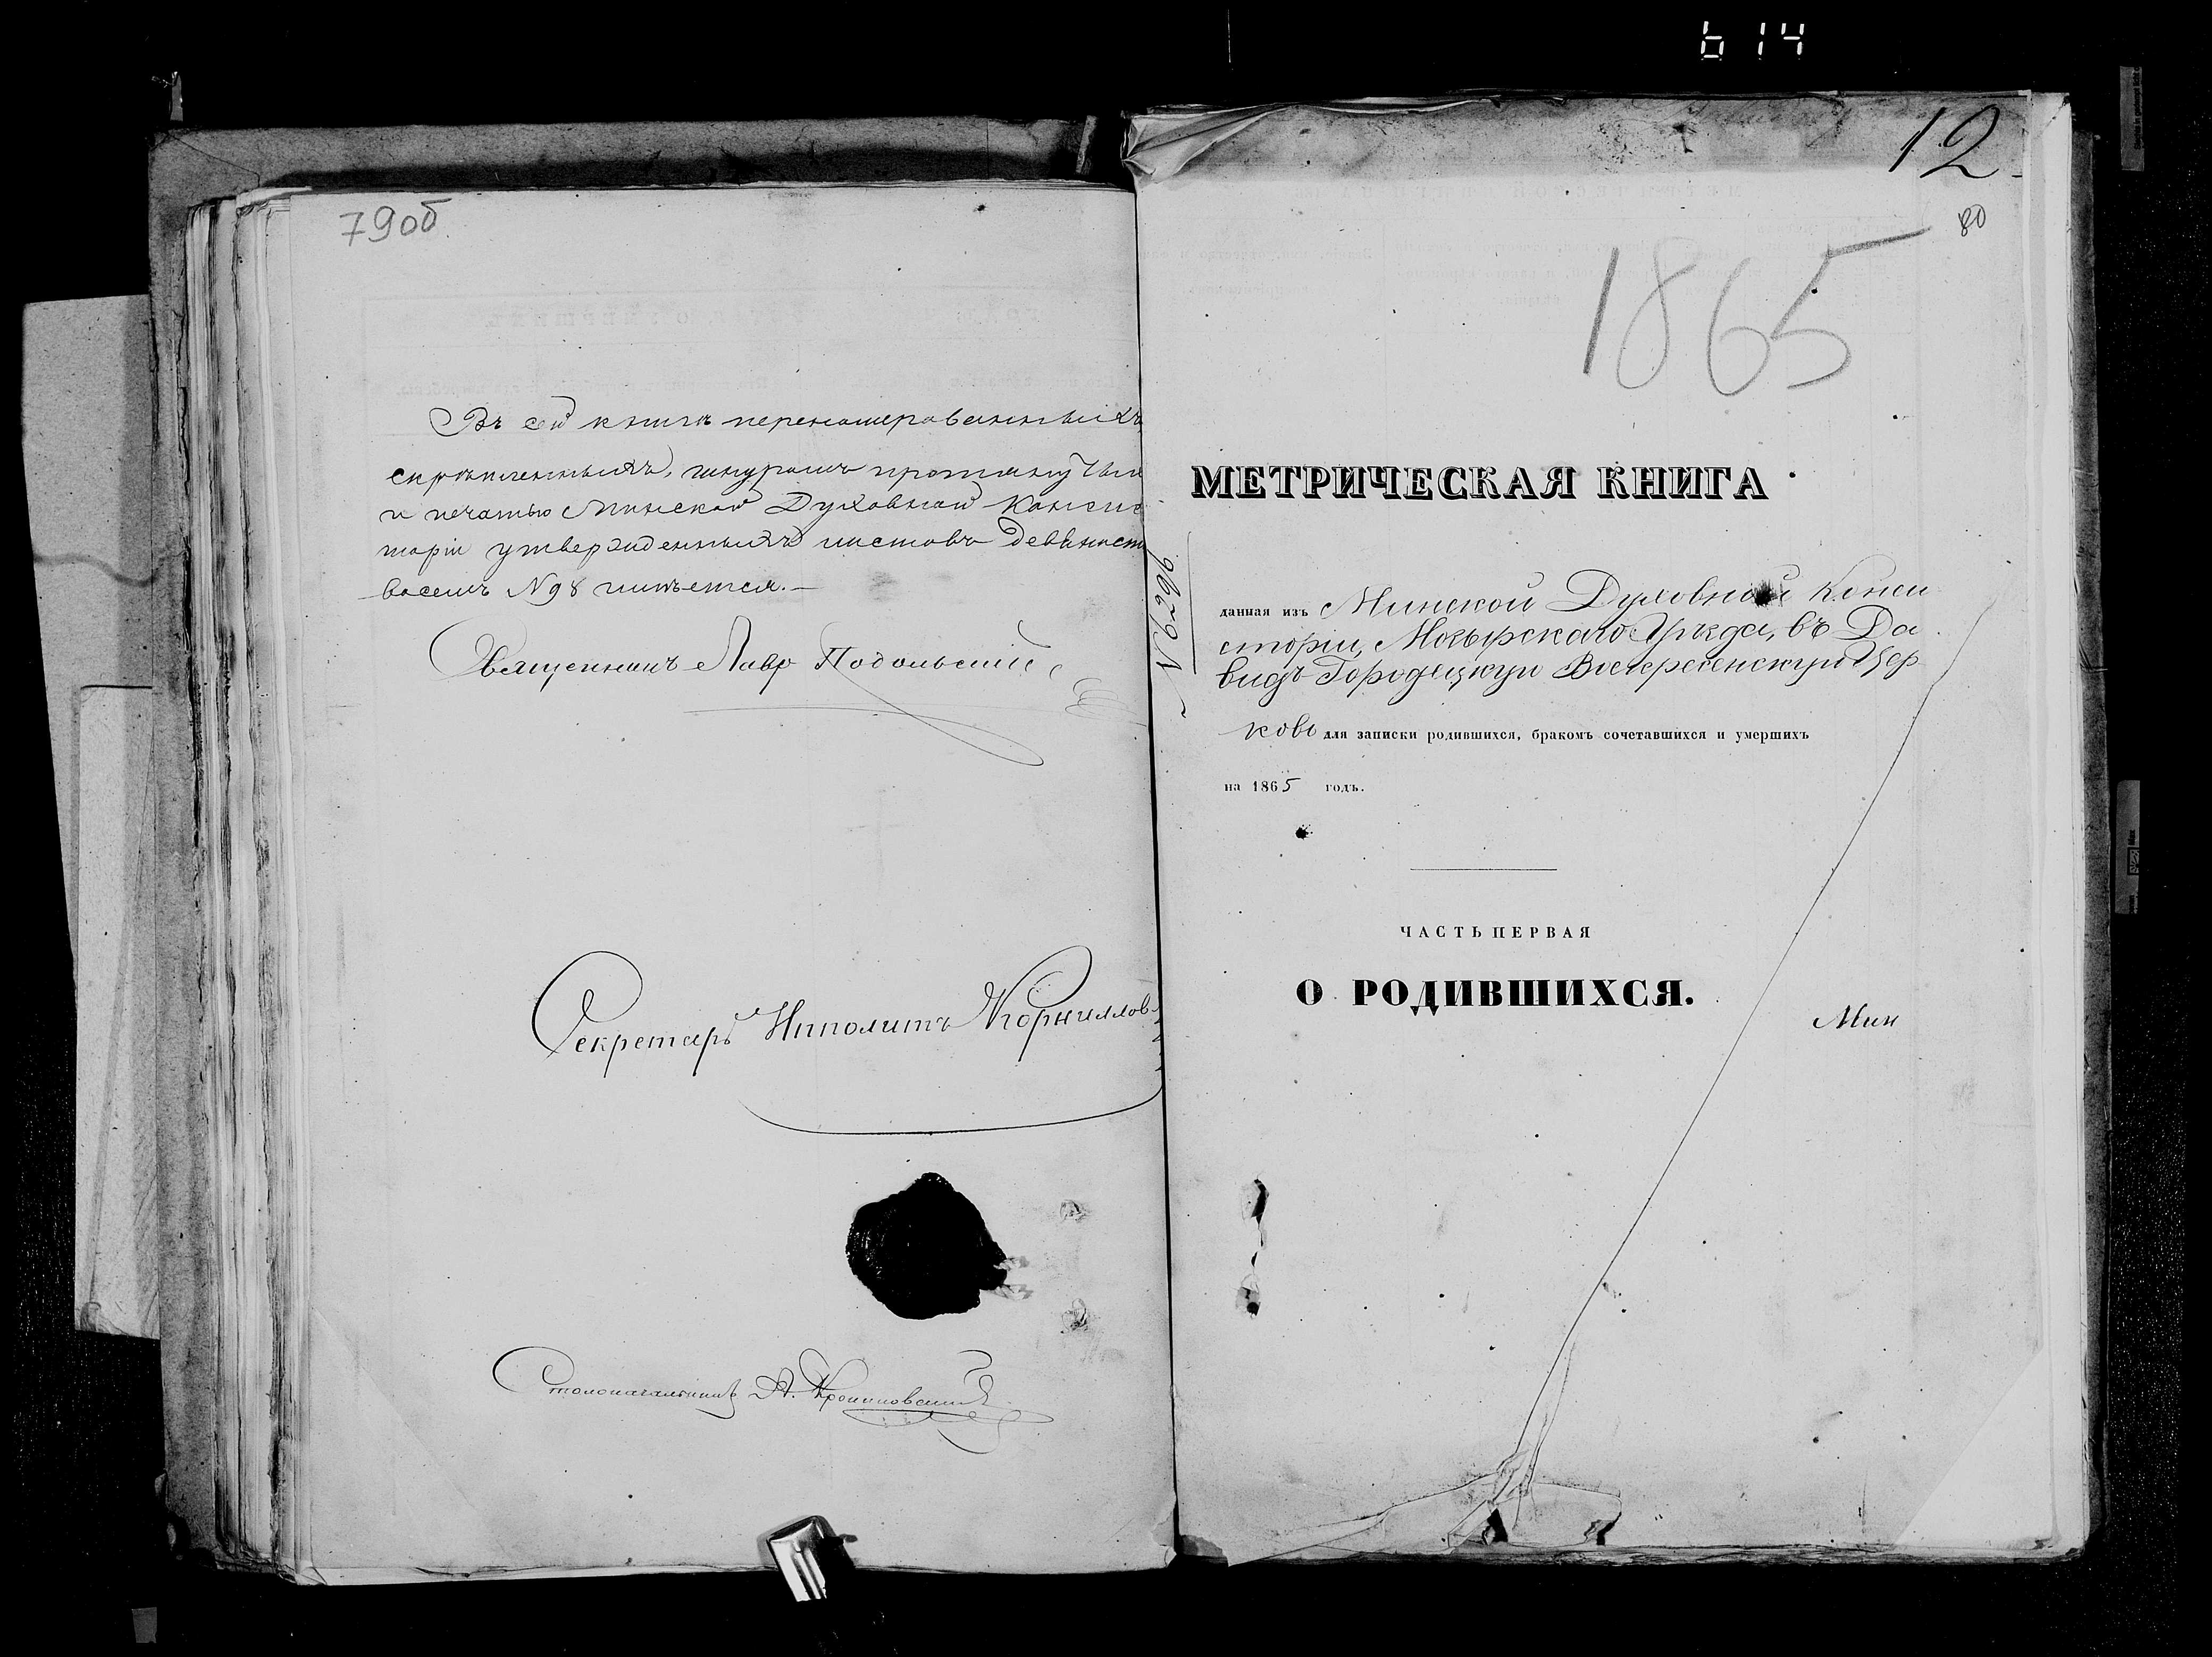 614
79об
Въ сей книгѣ перенумерованныхъ
скрѣпленныхъ, шнуромъ протянутых
и печатью Минской Духовной Консис
торіи утвержденныхъ листовъ девяност
восемь N98 имѣется.—
Священникъ Лавр Подольский
Секретарь Ипполитъ Корнилов
Столоначальникъ А.
12
80
1865
МЕТРИЧЕСКАЯ КНИГА
N6296
данная изъ Минской Духовной Конси
сторіи, Мозырскаго Уѣзда, въ Да
видъ Городецкую Воскресенскую Цер
ковь для записки родившихся, бракомъ сочетавшихся и умершихъ
на 1865 годъ.
ЧАСТЬ ПЕРВАЯ
О РОДИВШИХСЯ.
Мин